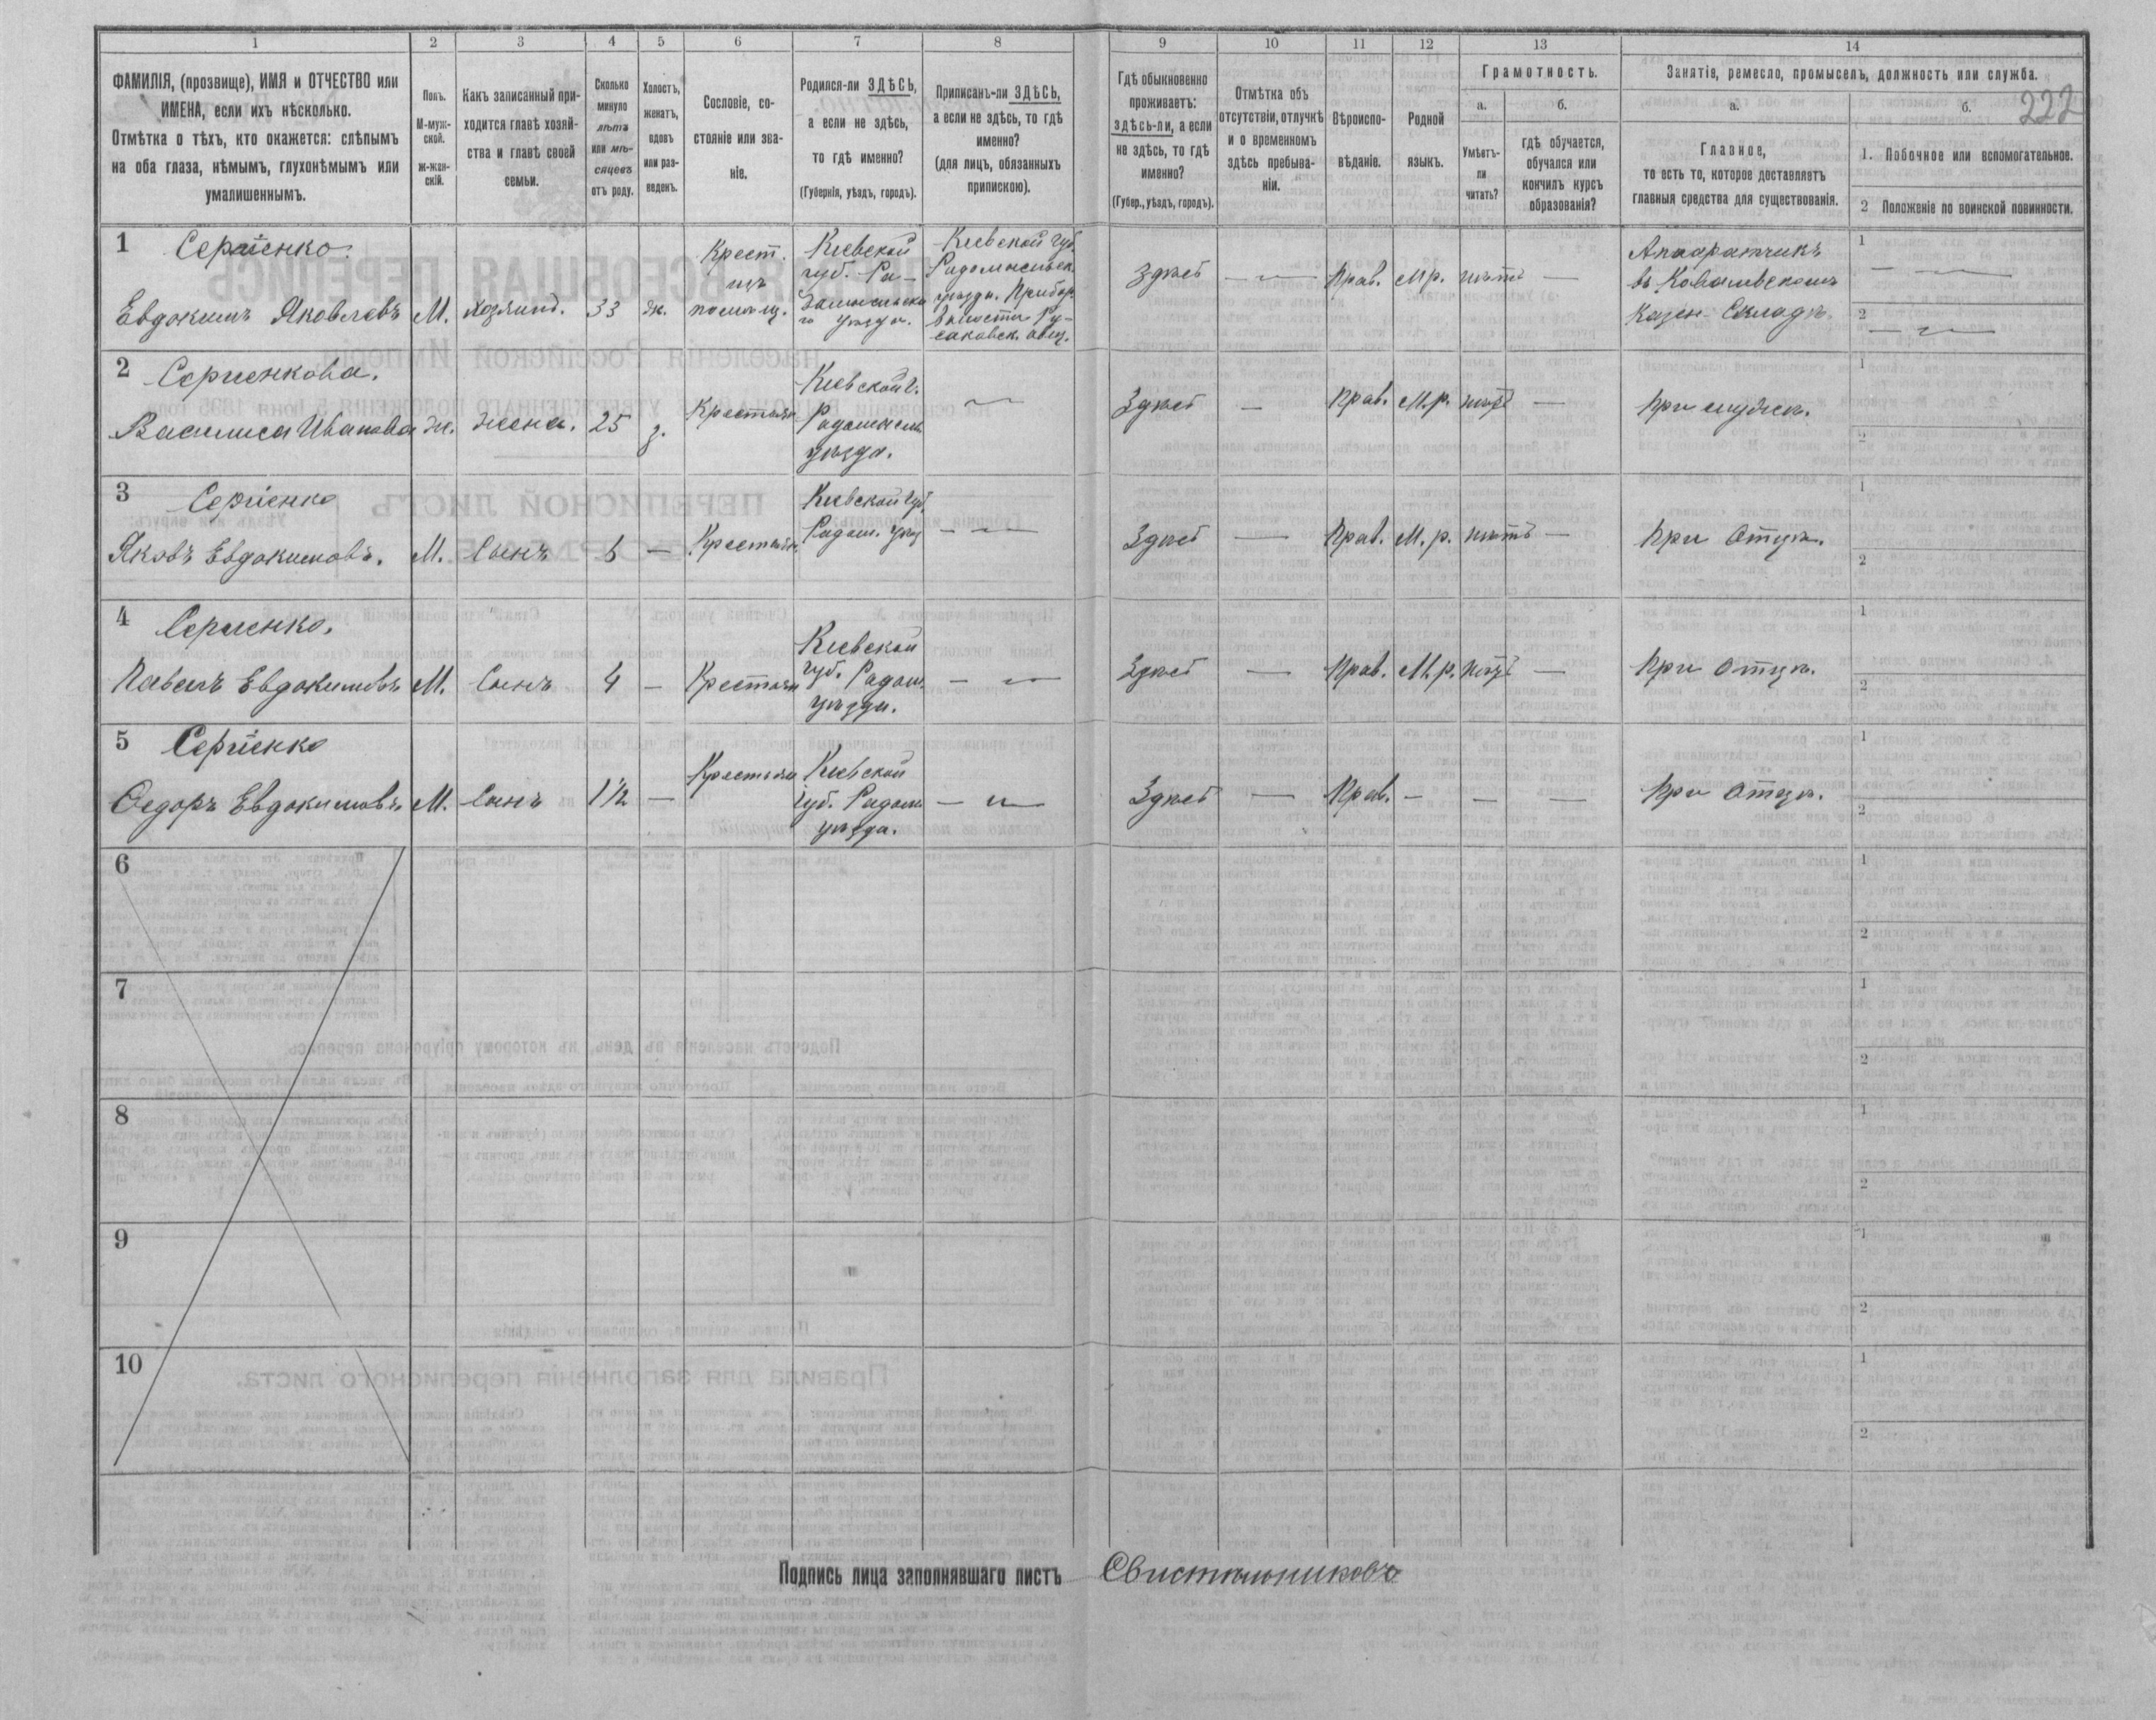 1 2 3 4 5 6 7 8 9 10 11 12 13 14
ФАМИЛІЯ, (прозвище), ИМЯ и ОТЧЕСТВО или
ИМЕНА, если ихъ нѣсколько.
Отмѣтка о тѣхъ, кто окажется: слѣпымъ
на оба глаза, нѣмымъ, глухонѣмымъ или
умалишеннымъ.
Полъ.
М-муж-
ской.
ж-жен-
скій.
Какъ записанный при-
ходится главѣ хозяй-
ства и главѣ своей
семьи.
Сколько
минуло
лѣтъ
или мѣ-
сяцевъ
отъ роду.
Холостъ,
женатъ,
вдовъ
или раз-
веденъ.
Сословіе, со-
стояніе или зва-
ніе.
Родился-ли ЗДѢСЬ,
а если не здѣсь,
то гдѣ именно?
(Губернія, уѣздъ, городъ).
Приписанъ-ли ЗДѢСЬ,
а если не здѣсь, то гдѣ
именно?
(для лицъ, обязанныхъ
припискою).
Гдѣ обыкновенно
проживаетъ:
здѣсь-ли, а если
не здѣсь, то гдѣ
именно?
(Губер., уѣздъ, городъ).
Отмѣтка объ
отсутствіи, отлучкѣ
и о временномъ
здѣсь пребыва-
ніи.
Вѣроиспо-
вѣданіе.
Родной
языкъ.
Грамотность.
а. б.
Умѣетъ-
ли
читать?
гдѣ обучается,
обучался или
кончилъ курсъ
образованія?
Занятіе, ремесло, промыселъ, должность или служба.
а. б. 222
Главное,
то есть то, которое доставляетъ
главныя средства для существованія.
1. Побочное или вспомогательное.
2 Положеніе по воинской повинности.
1 Сергіенко
Евдокимъ Яковлевъ
М.
хозяинъ.
33
ж.
Крест.
изъ
помѣщ.
Кіевской
губ. Ра-
домысльска
го уѣзда.
Кіевской губ.
Радомысльск.
уѣзда. Прибор.
волости Ру-
саковск. общ.
Здѣсь
—
Прав.
М.р.
нѣтъ
—
Аппаратчикъ
въ Ковалевскомъ
Казен. Складѣ.
1 —
2 —
2 Сергіенкова.
Василиса Иванова
ж.
жена.
25
з.
Крестьян
Кіевской г.
Радомысль
уѣзда.
—
Здѣсь
—
Прав.
М.р.
нѣтъ
—
При мужѣ.
1
2
3 Сергіенко
Яковъ Евдокимовъ.
М.
Сынъ
6
—
Крестьян.
Кіевской губ.
Радом. уѣзд
—
Здѣсь
—
Прав.
М.р.
нѣтъ
—
При Отцѣ.
1
2
4 Сергіенко.
Павелъ Евдокимовъ
М.
Сынъ
4
—
Крестьян
Кіевской
губ. Радом.
уѣзда.
—
Здѣсь
—
Прав.
М.р.
нѣтъ
—
При Отцѣ.
1
2
5 Сергіенко
Федоръ Евдокимовъ
М.
Сынъ
1½
—
Крестьян
Кіевской
губ. Радом
уѣзда.
—
Здѣсь
—
Прав.
—
—
—
При Отцѣ.
1
2
6
1
2
7
1
2
8
1
2
9
1
2
10
1
2
Подпись лица заполнявшаго листъ Свистальниковъ